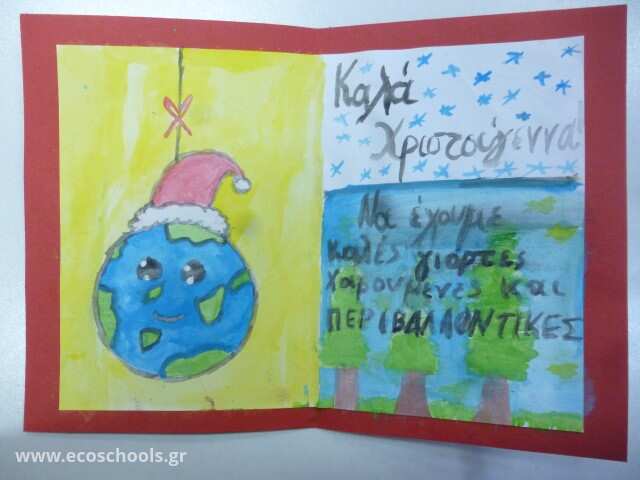 Καλά
Χριστούγεννα
Να έχουμε
καλές γιορτες
χαρουμενες και
ΠΕΡΙΒΑΛΛΟΝΤΙΚΕΣ
www.ecoschools.gr